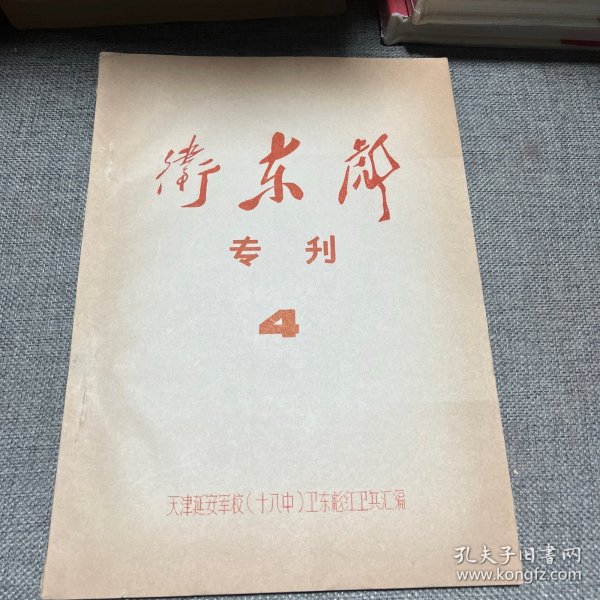 衛东彪
专刊
4
天津延安军校(十八中)卫东彪红卫兵汇编
孔夫子旧书网
www.kongfz.com